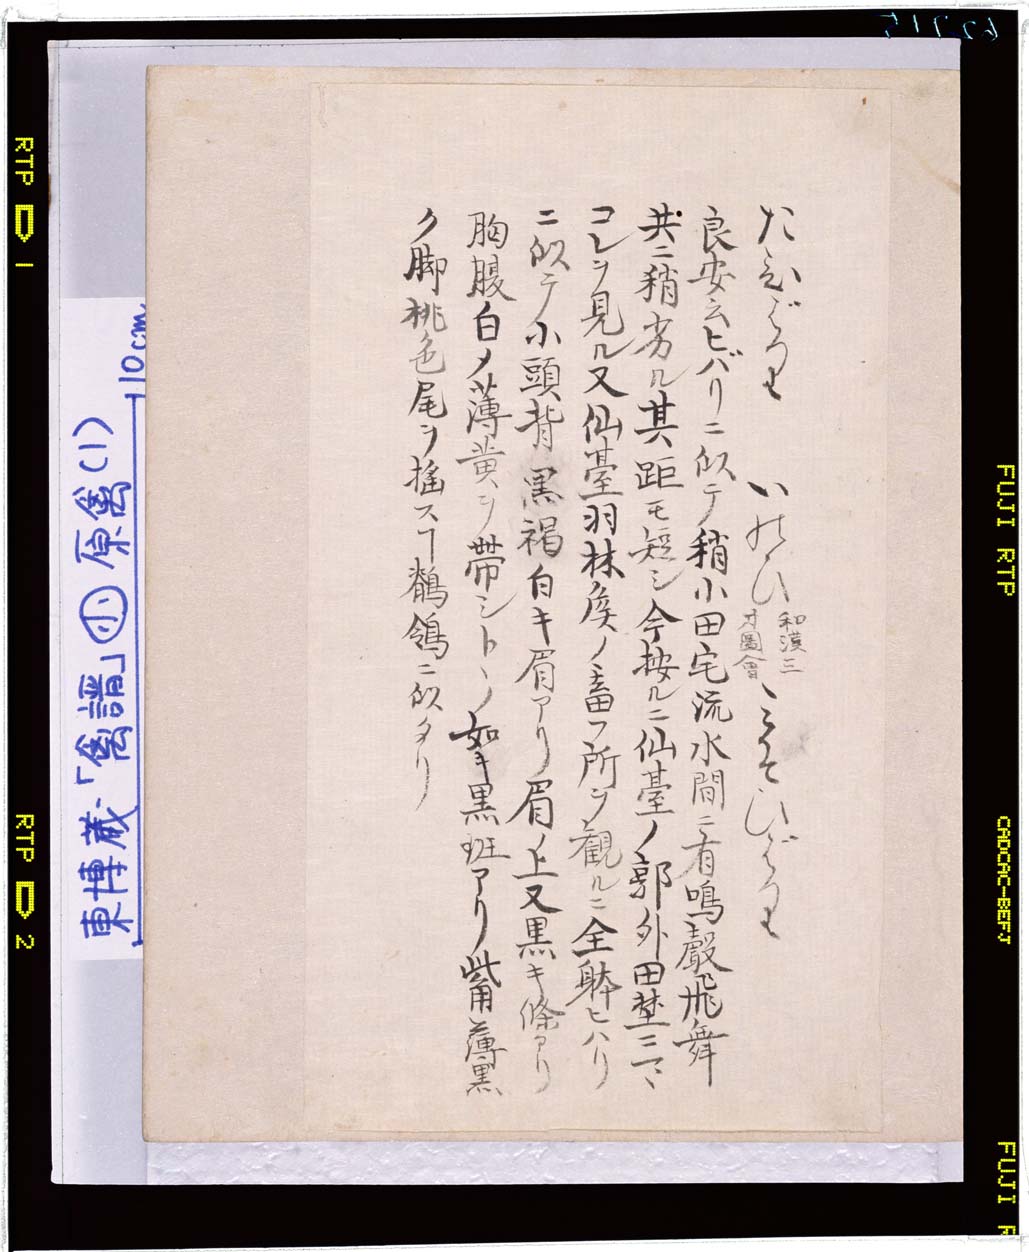 たひばり いぬひ 和漢三才圖會 、みぞひばり
良安云ヒバリニ似テ稍小田宅流水間ニ有鳴聲飛舞
共ニ稍劣ル其距モ短シ今按ルニ仙臺ノ郭外田埜ニマヽ
コレヲ見ル又仙臺羽林矦ノ畜フ所ヲ観ルニ全躰ヒハリ
ニ似テ小頭背黒褐白キ眉アリ眉ノ上又黒キ條アリ
胸腹白メ薄黄ヲ帯シトヽノ如キ黒斑アリ觜薄黒
ク脚桃色尾ヲ搖スヿ鶺鴒ニ似タリ
東博蔵「禽譜」小 原禽(1)
10cm
RTP 1
RTP 2
FUJI RTP
CADCAC-BEFJ
FUJI R